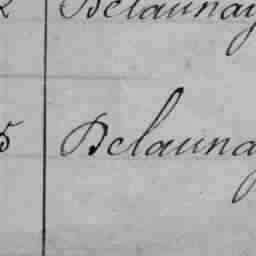 2 Belaunay
5 Belaunay